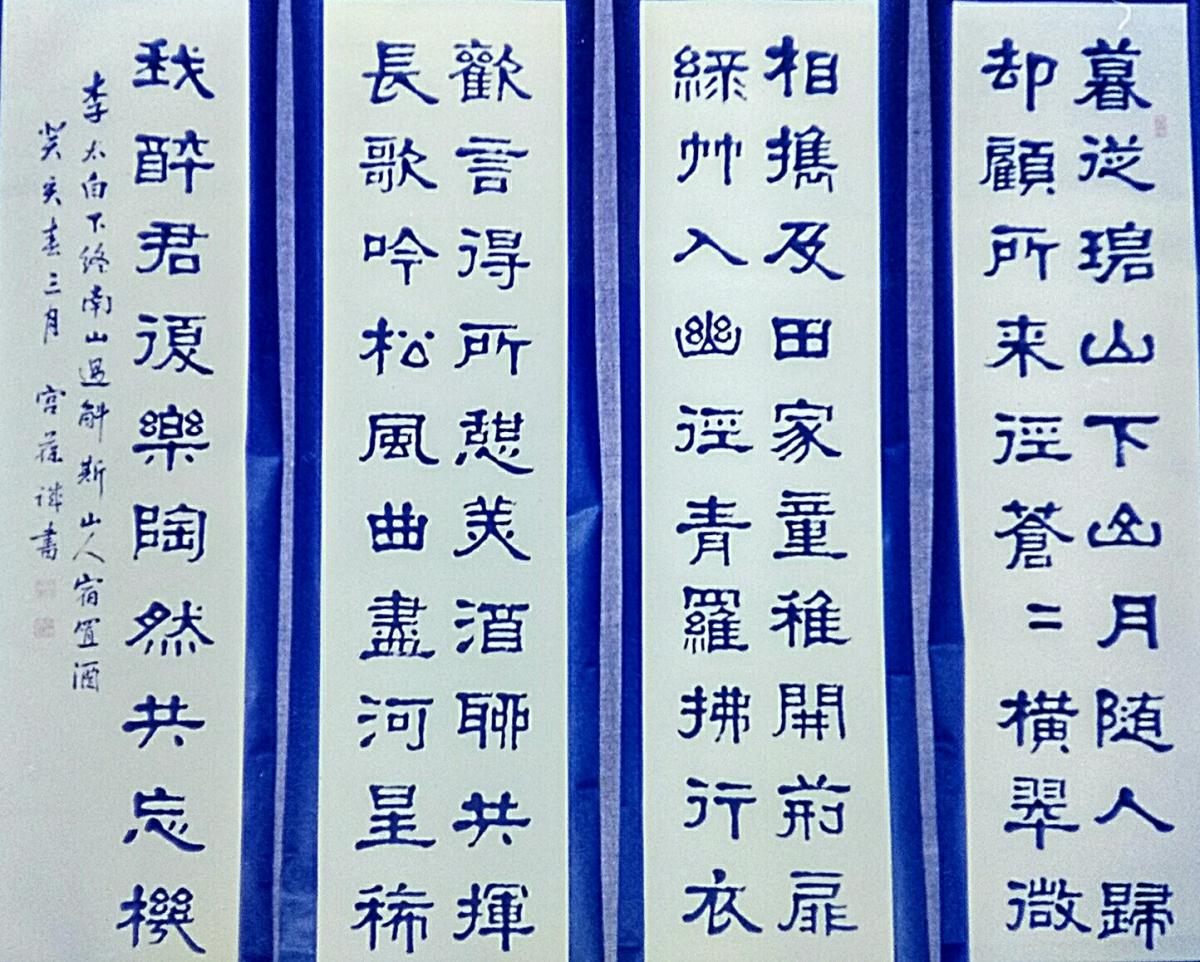 暮從碧山下山月随人歸
却顧所来徑蒼二橫翠微
相攜及田家童稚開荊扉
綠艸入幽徑青羅拂行衣
歡言得所憩美酒聊共揮
長歌吟松風曲盡河星稀
我醉君復樂陶然共忘機
李太白下終南山過斛斯山人宿置酒
癸亥春三月 宮葆誠書